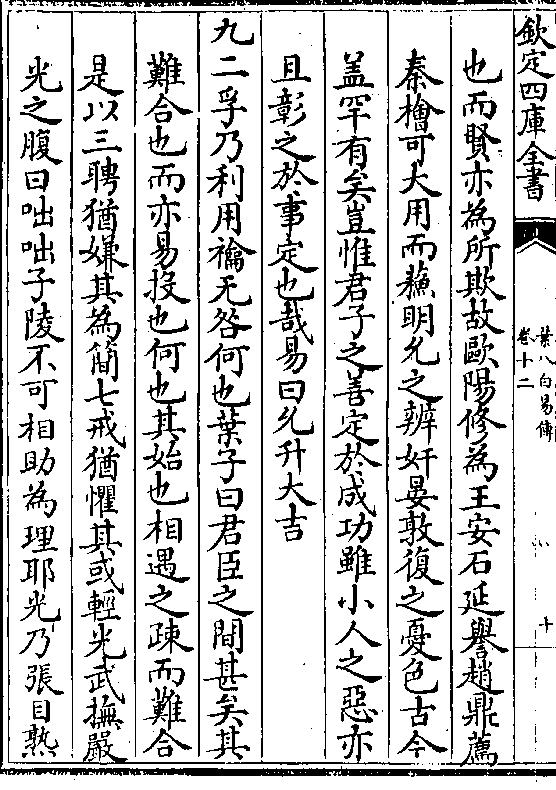 欽定四庫全書
葉八白易傳
卷十二
十
也而賢亦為所欺故歐陽修為王安石延譽趙鼎薦
秦檜可大用而蘓明允之辨奸晏敦復之憂色古今
盖罕有矣豈惟君子之善定於成功雖小人之惡亦
且彰之於事定也哉易曰允升大吉
九二孚乃利用禴无咎何也葉子曰君臣之間甚矣其
難合也而亦易投也何也其始也相遇之疎而難合
是以三聘猶嫌其為簡七戒猶懼其或輕光武撫嚴
光之腹曰咄咄子陵不可相助為理耶光乃張目熟